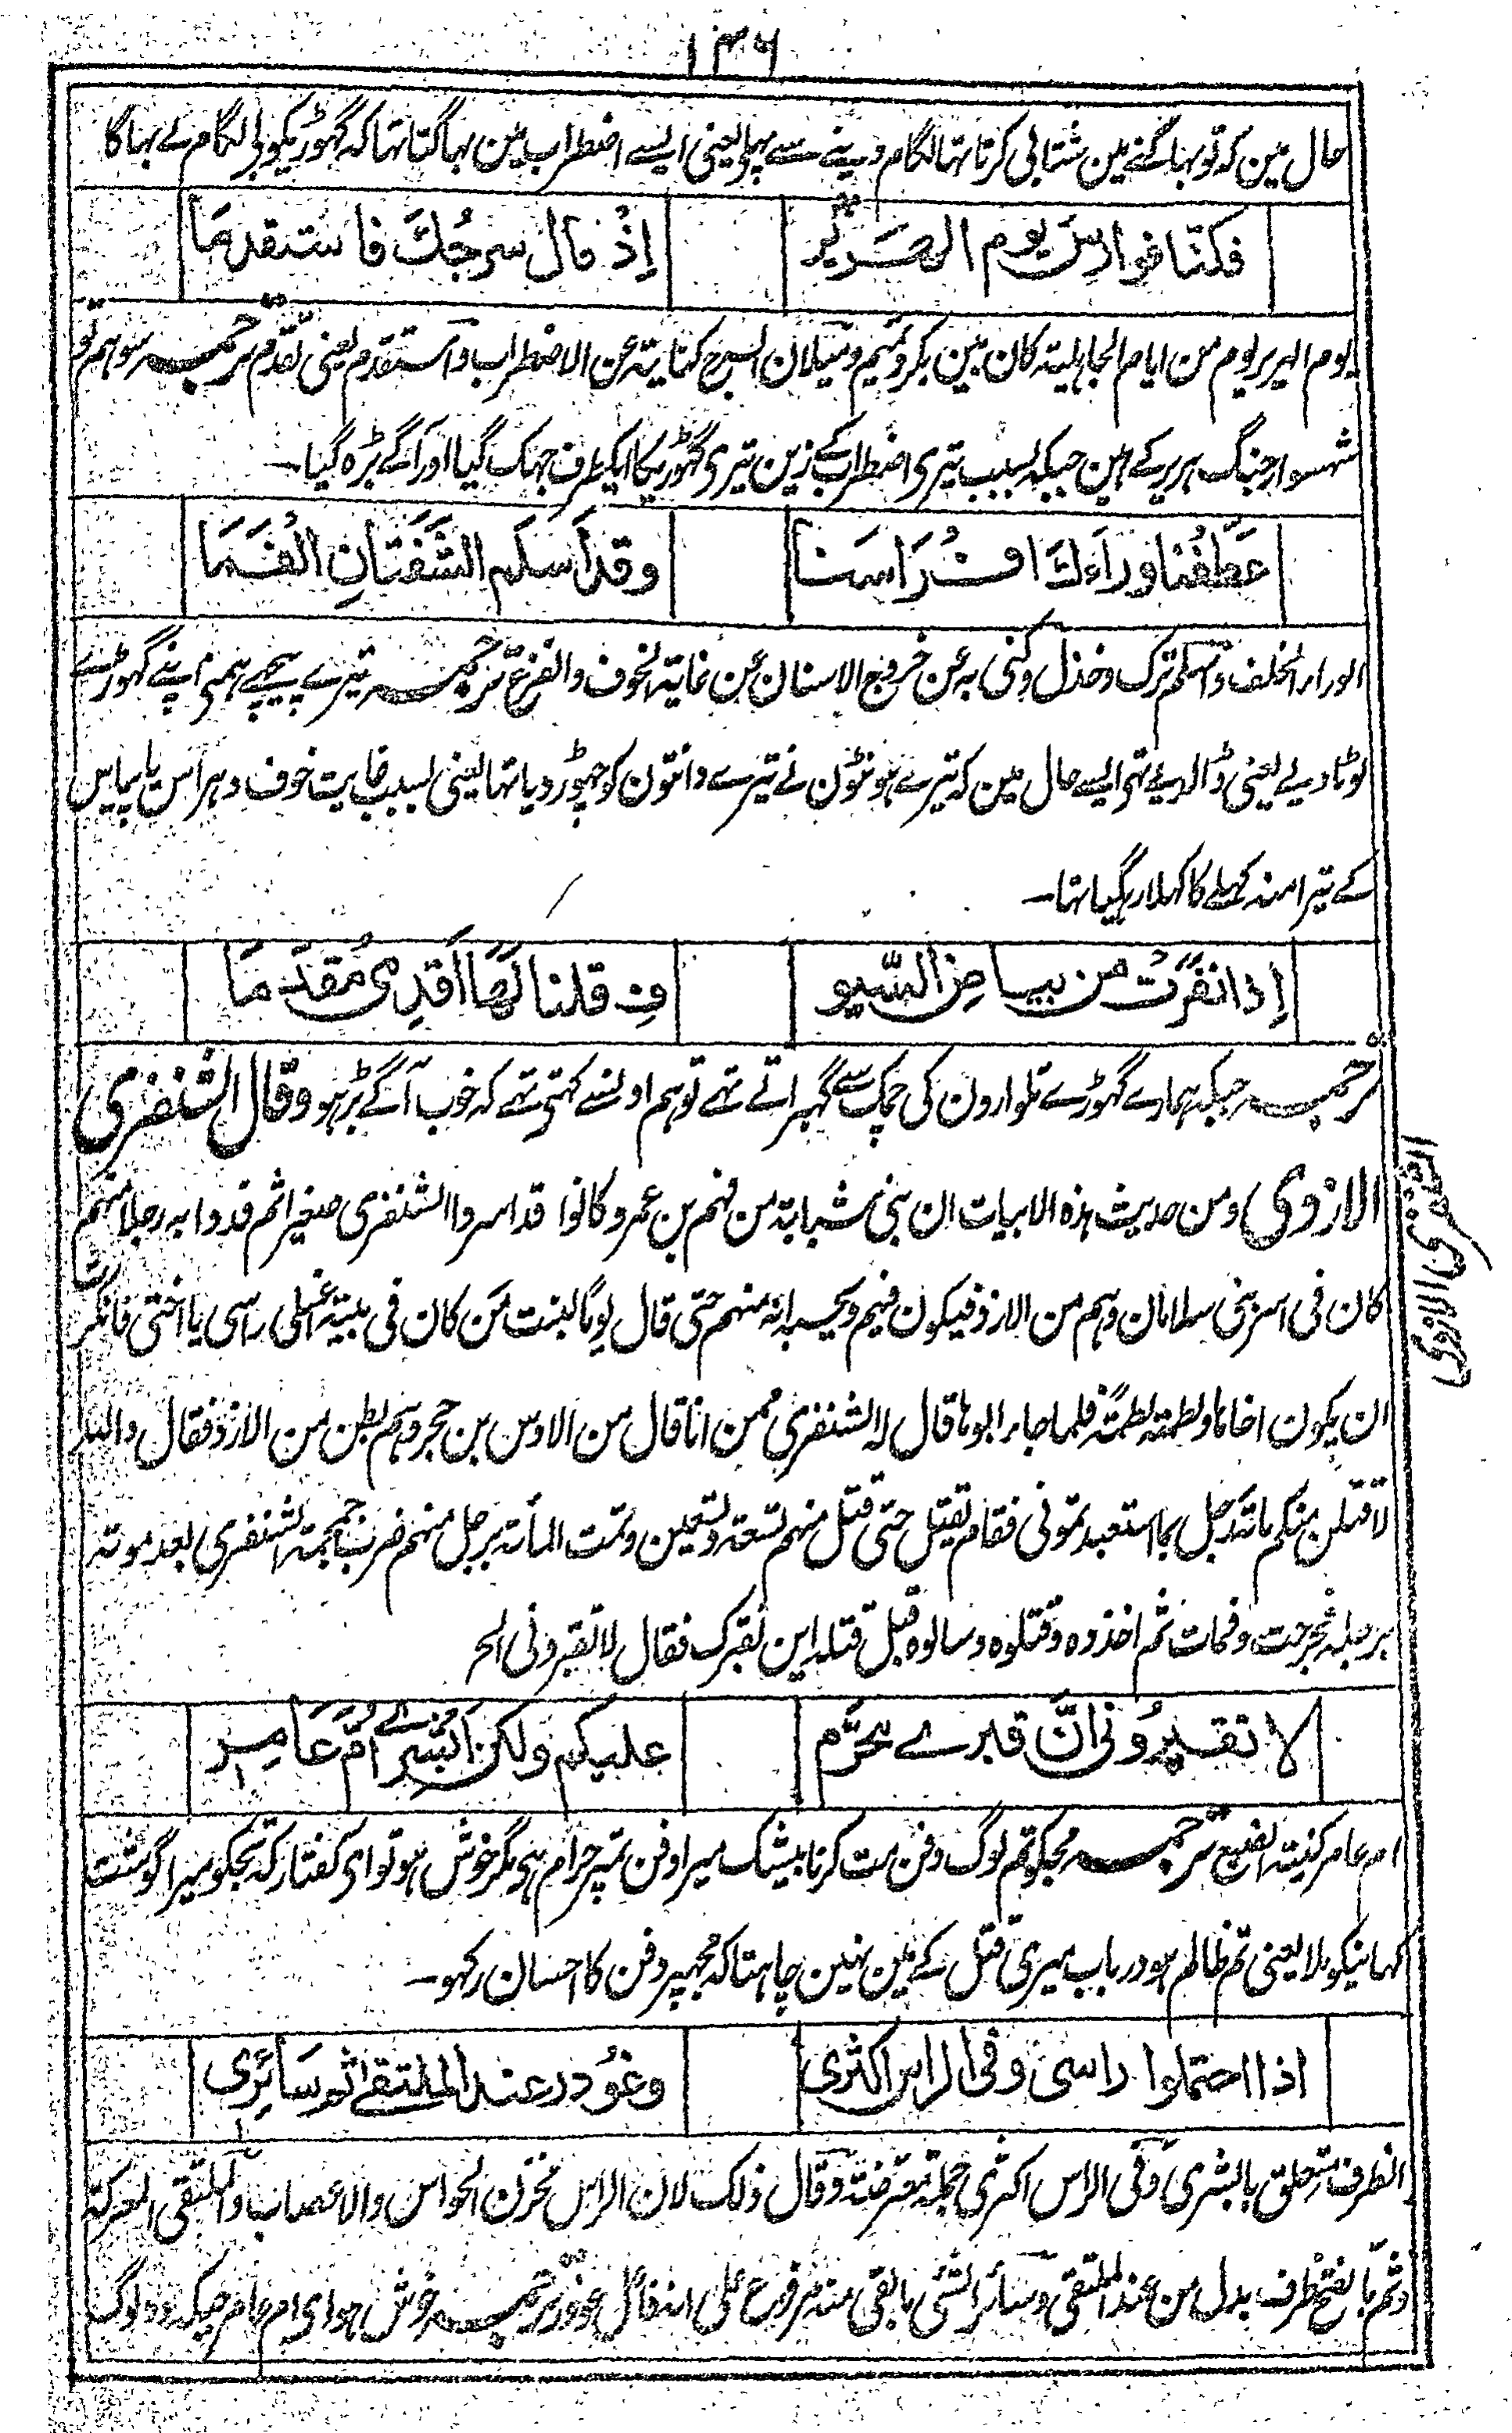 ۱۳۶
حال مین کہ تو بہاگنے مین شتابی کرتا تہا لگام دینے سے پہلے یعنی ایسے اضطراب مین بہاگتا تہا کہ گہوڑیکو بے لگام لے بہاگا
فكنّا فوارسَ يوم الهَرِيْر اِذْ مال سرجُكَ فاستقدمَا
یوم الہریر یوم من ایام الجاہلیۃ کان بین بکر و تمیم و میلان السرج کنایۃ عن الاضطراب و استقدم یعنی تقدّم ترجمہ سو ہم تو
شہسوار جنگ ہریر کے ہین جبکہ بسبب تیری اضطراب کے زین تیری گہوڑیکا ایکطرف جہک گیا اور آگے بڑہ گیا۔
عَطَفْنا وراءَكَ افْرَاسَنا وقد اَسلَم الشَفَتَانِ الفَمَا
الوراء الخلف و اسلم ترک و خذل و کنی بہ عن خروج الاسنان عن غایۃ الخوف و الفزع ترجمہ تیرے پیچہے ہمنے اپنے گہوڑے
لوٹا دیے یعنی ڈالدیے تہے ایسے حال مین کہ تیرے ہونٹون نے تیرے دانتون کو چہوڑ دیا تہا یعنی بسبب غایت خوف و ہراس یا پیاس
کے تیرا منہ کہلے کا کہلا رہگیا تہا۔
اِذا نفَرَتْ من بياضِ السّيو فِ قلنا لَهَا اَقدِمِى مُقدَمَا
ترجمہ جبکہ ہمارے گہوڑے تلوارون کی چمک سے گہبراتے تہے تو ہم اونسے کہتے تہے کہ خوب آگے بڑہو وقال الشنفری
الازدی و من حدیث ہذہ الابیات ان بنی شبابۃ من فہم بن عمرو کانوا قد اسروا الشنفری صغیرا ثم فدوا بہ رجلا منہم
کان فی اسر بنی سلامان و ہم من الازد فیکون فیہم و یحسب انہ منہم حتی قال یوما لبنت من کان فی بیتہ اغسلی راسی یا اختی فانکرت
ان یکون اخاہا و لطمتہ لطمۃ فلما جاء ابوہا قال لہ الشنفری ممن انا قال من الاوس بن حجر و ہم بطن من الازد فقال واللہ
لاقتلن منکم مائۃ رجل بما استعبدتمونی فقام یقتل حتی قتل منہم تسعۃ و تسعین و تمت المأۃ برجل منہم ضرب جمجمۃ الشنفری بعد موتہ
برجلہ فجرحت و فمات ثم اخذوہ و قتلوہ و سالوہ قبل قتلہ این نقبرک فقال لا تقبرونی الخ
لا تقبرُونى انّ قبرے محرّم عليكم ولكن ابشرى اُمَّ عَامِر
ام عامر کنیۃ الضبع ترجمہ مجکو تم لوگ دفن مت کرنا بیشک میرا دفن تمپر حرام ہی مگر خوش ہو تو ای کفتار کہ تجکو میرا گوشت
کہانیکو ملا یعنی تم ظالم ہو در باب میری قتل کے مین نہین چاہتا کہ مجہپر دفن کا احسان رکہو۔
اذا احتملوا راسى وفى الراس اكثرى وغُودر عند الملتقى ثَم سَائِرى
الظرف متعلق بابشری و فی الراس اکثری جملۃ معترضۃ و قال ذلک لان الراس مخزن الحواس و الاعصاب و الملتقی المعرکۃ
و ثَمّ بالفتح ظرف بدل من عند الملتقی و سائر الشئی ما بقی منہ مرفوع علی انہ فاعل غودر ترجمہ خوش ہو ای ام عامر جبکہ وہ لوگ
الشنفری الازدی